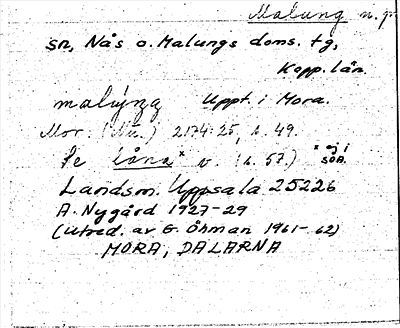 Malung n.pr.
sn, Nås o. Malungs doms. tg,
Kopp. län.
malýŋg Uppt. i Mora.
Mor. (Mu.) 2174:25, s. 49.
Se låna* v. (s. 57.) * ej i SOA.
Landsm. Uppsala 25226
A. Nygård 1927-29
(utred. av G. Öhman 1961-62)
MORA, DALARNA